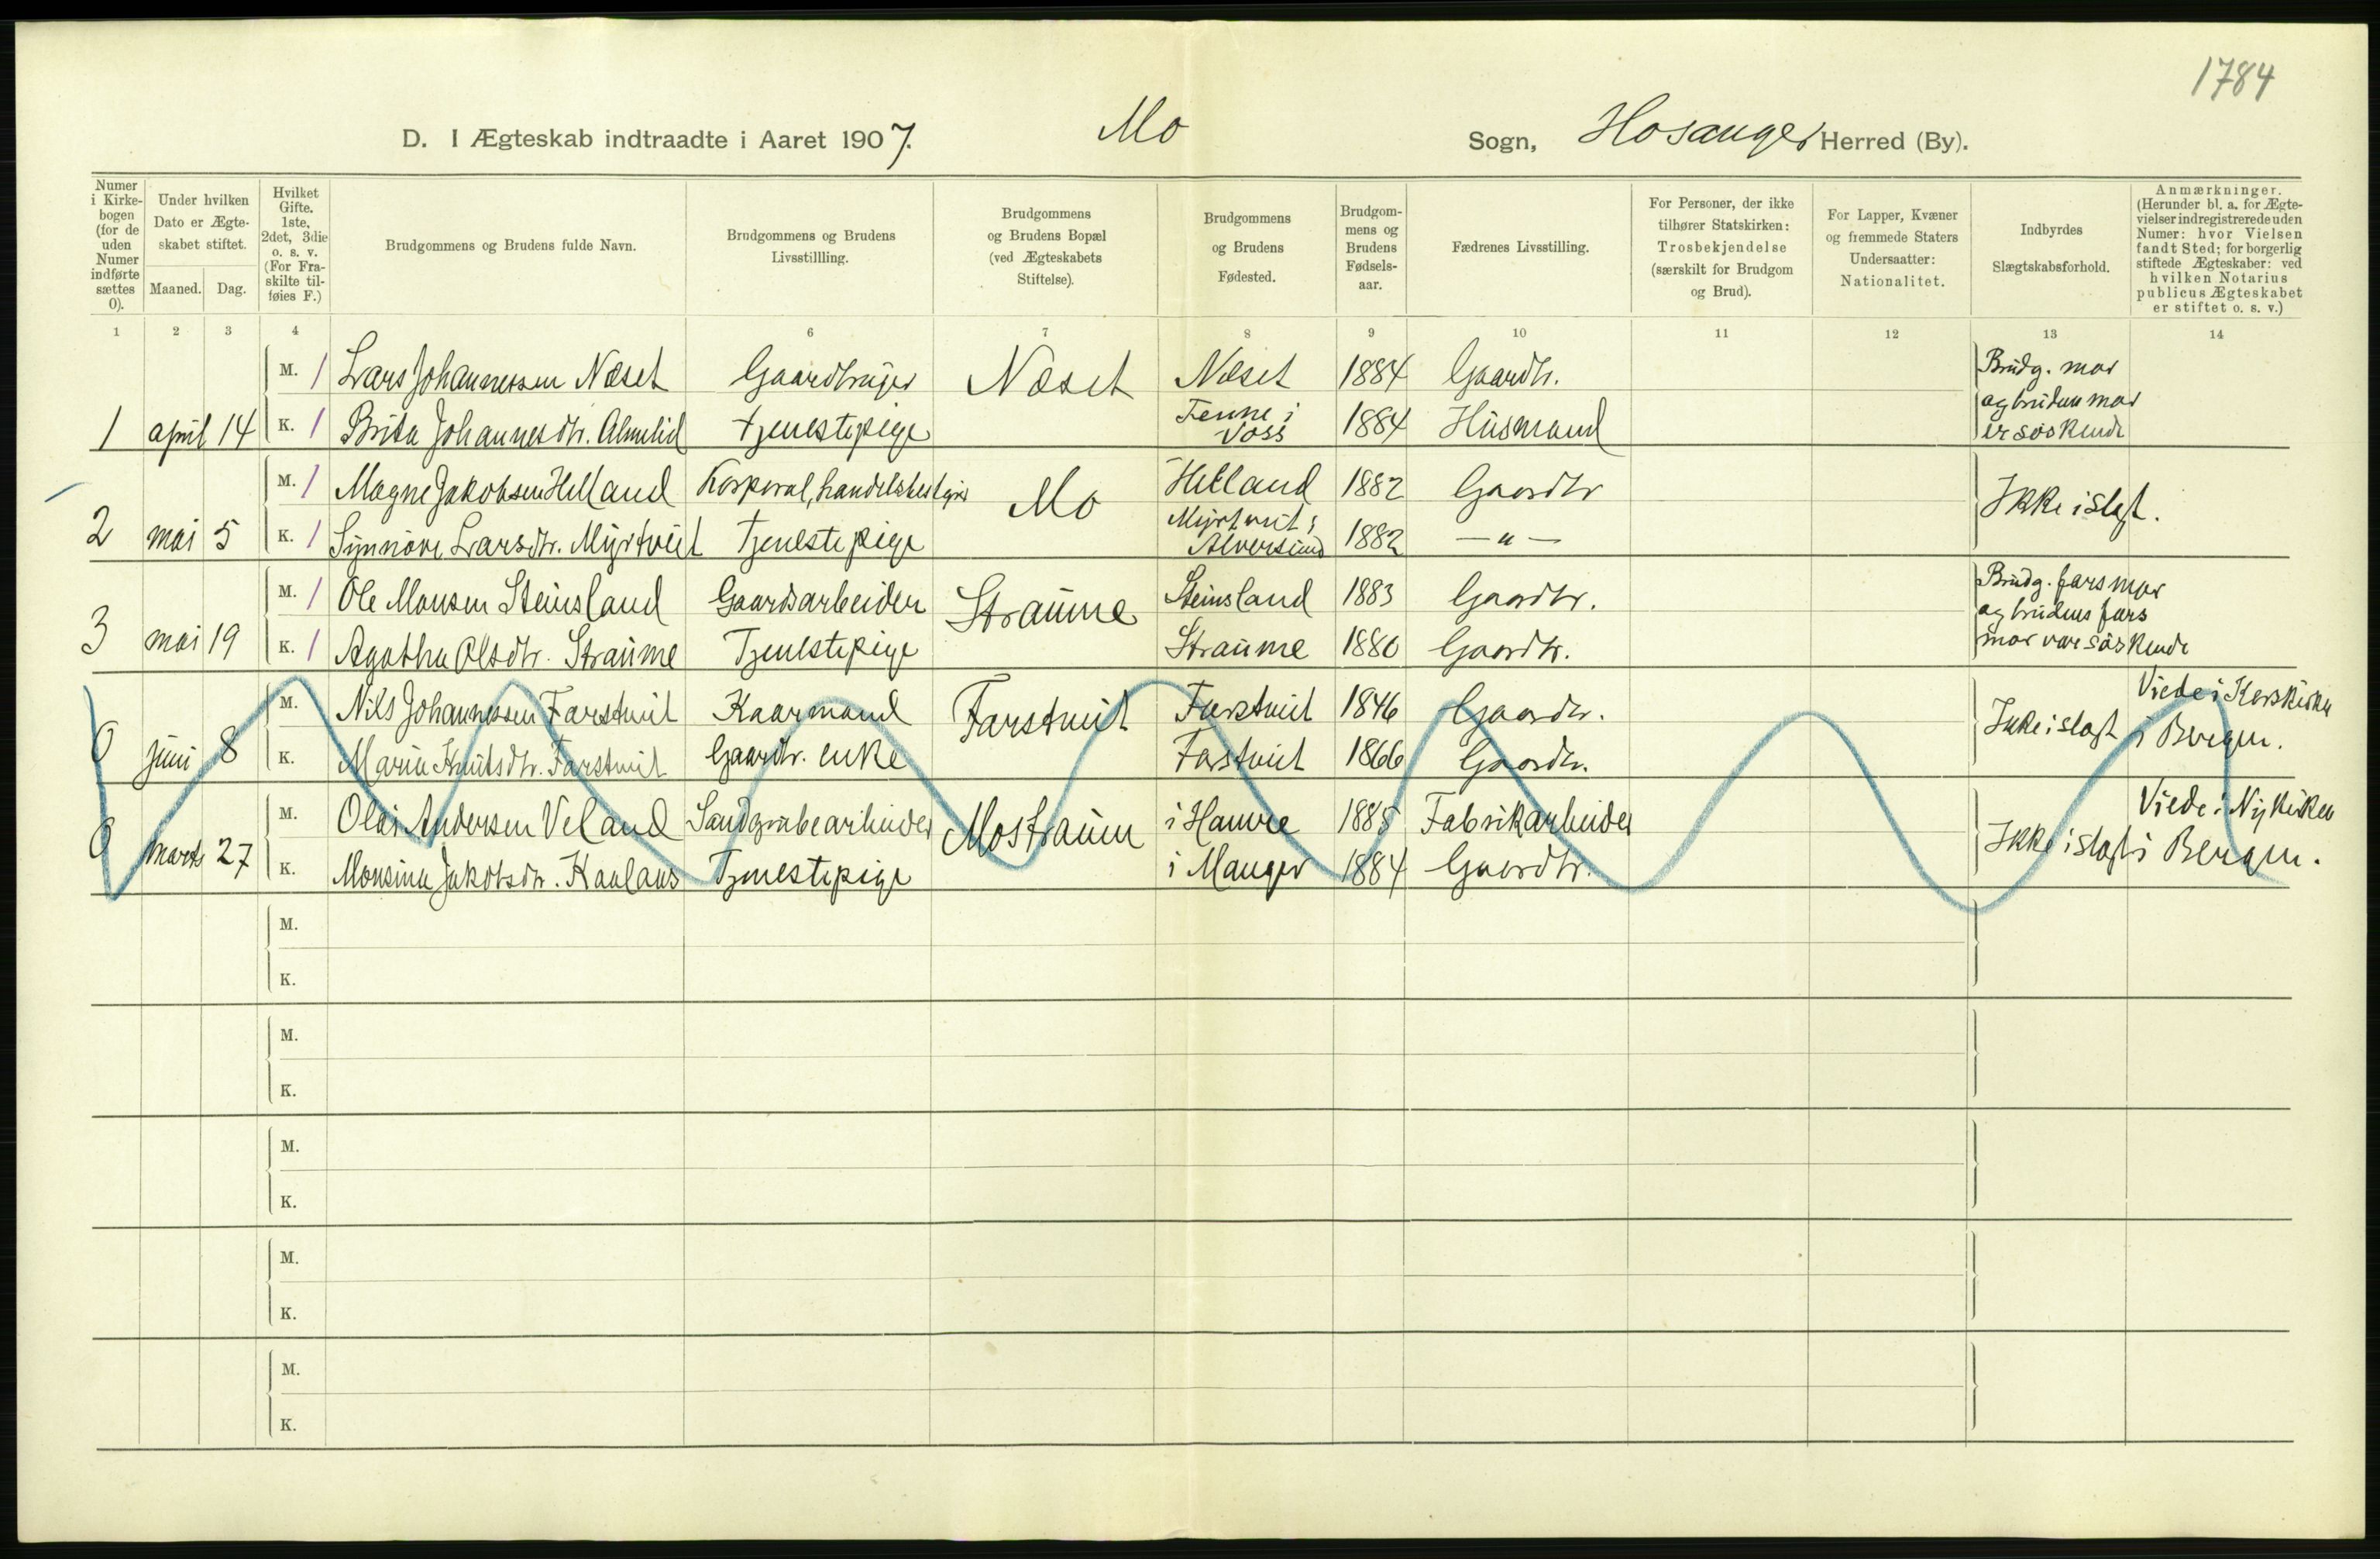 1784
D. I Ægteskab indtraadte i Aaret 1907. Mo Sogn, Hosanger Herred (By).
Numer i Kirkebogen (for de uden Numer indførte sættes 0).
Under hvilken Dato er Ægteskabet stiftet.
Maaned. Dag.
Hvilket Gifte. 1ste, 2det, 3die o. s. v. (For Fraskilte tilføies F.)
Brudgommens og Brudens fulde Navn.
Brudgommens og Brudens Livsstillling.
Brudgommens og Brudens Bopæl (ved Ægteskabets Stiftelse).
Brudgommens og Brudens Fødested.
Brudgommens og Brudens Fødselsaar.
Fædrenes Livsstilling.
For Personer, der ikke tilhører Statskirken: Trosbekjendelse (særskilt for Brudgom og Brud).
For Lapper, Kvæner og fremmede Staters Undersaatter: Nationalitet.
Indbyrdes Slægtskabsforhold.
Anmærkninger. (Herunder bl. a. for Ægtevielser indregistrerede uden Numer: hvor Vielsen fandt Sted; for borgerlig stiftede Ægteskaber: ved hvilken Notarius publicus Ægteskabet er stiftet o. s. v.)
1 2 3 4 6 7 8 9 10 11 12 13 14
M. 1 Lars Johannessen Næset Gaardbruger Næset Næset 1884 Gaardbr. Brudg. mor
og bruden mor
1 april 14 K. 1 Brita Johannesdtr. Almelid tjenestepige Fenne i Voss 1884 Husmand er søskende
M. 1 Magne Jakobsen Helland Korporal, handelsbestyrer Mo Helland 1882 Gaardbr Ikke i slægt.
2 mai 5 K. 1 Synnøve Larsdtr. Myrtveit Tjenestepige Myrtveit i Alversund 1882 — " —
M. 1 Ole Monsen Steinsland Gaardsarbeider Straume Steinsland 1883 Gaardbr. Brudg. fars mor
og brudens fars
3 mai 19 K. 1 Agatha Olsdtr. Straume Tjenestepige Straume 1880 Gaardbr. mor var søskende
M. Nils Johannessen Farstveit Kaarmand Farstveit Farstveit 1846 Gaardbr. Ikke i slægt Viede i Korskirken
0 juni 8 K. Marie Knutsdtr. Farstveit Gaardbr. enke Farstveit 1866 Gaardbr. i Bergen.
M. Olai Andersen Veland Sandgrubearbeider Mostraum i Hamre 1885 Fabrikarbeider Ikke i slægt Viede i Nykirken
0 marts 27 K. Monsine Jakobsdtr. Kaulans Tjenestepige i Manger 1884 Gaardbr. i Bergen.
M.
K.
M.
K.
M.
K.
M.
K.
M.
K.